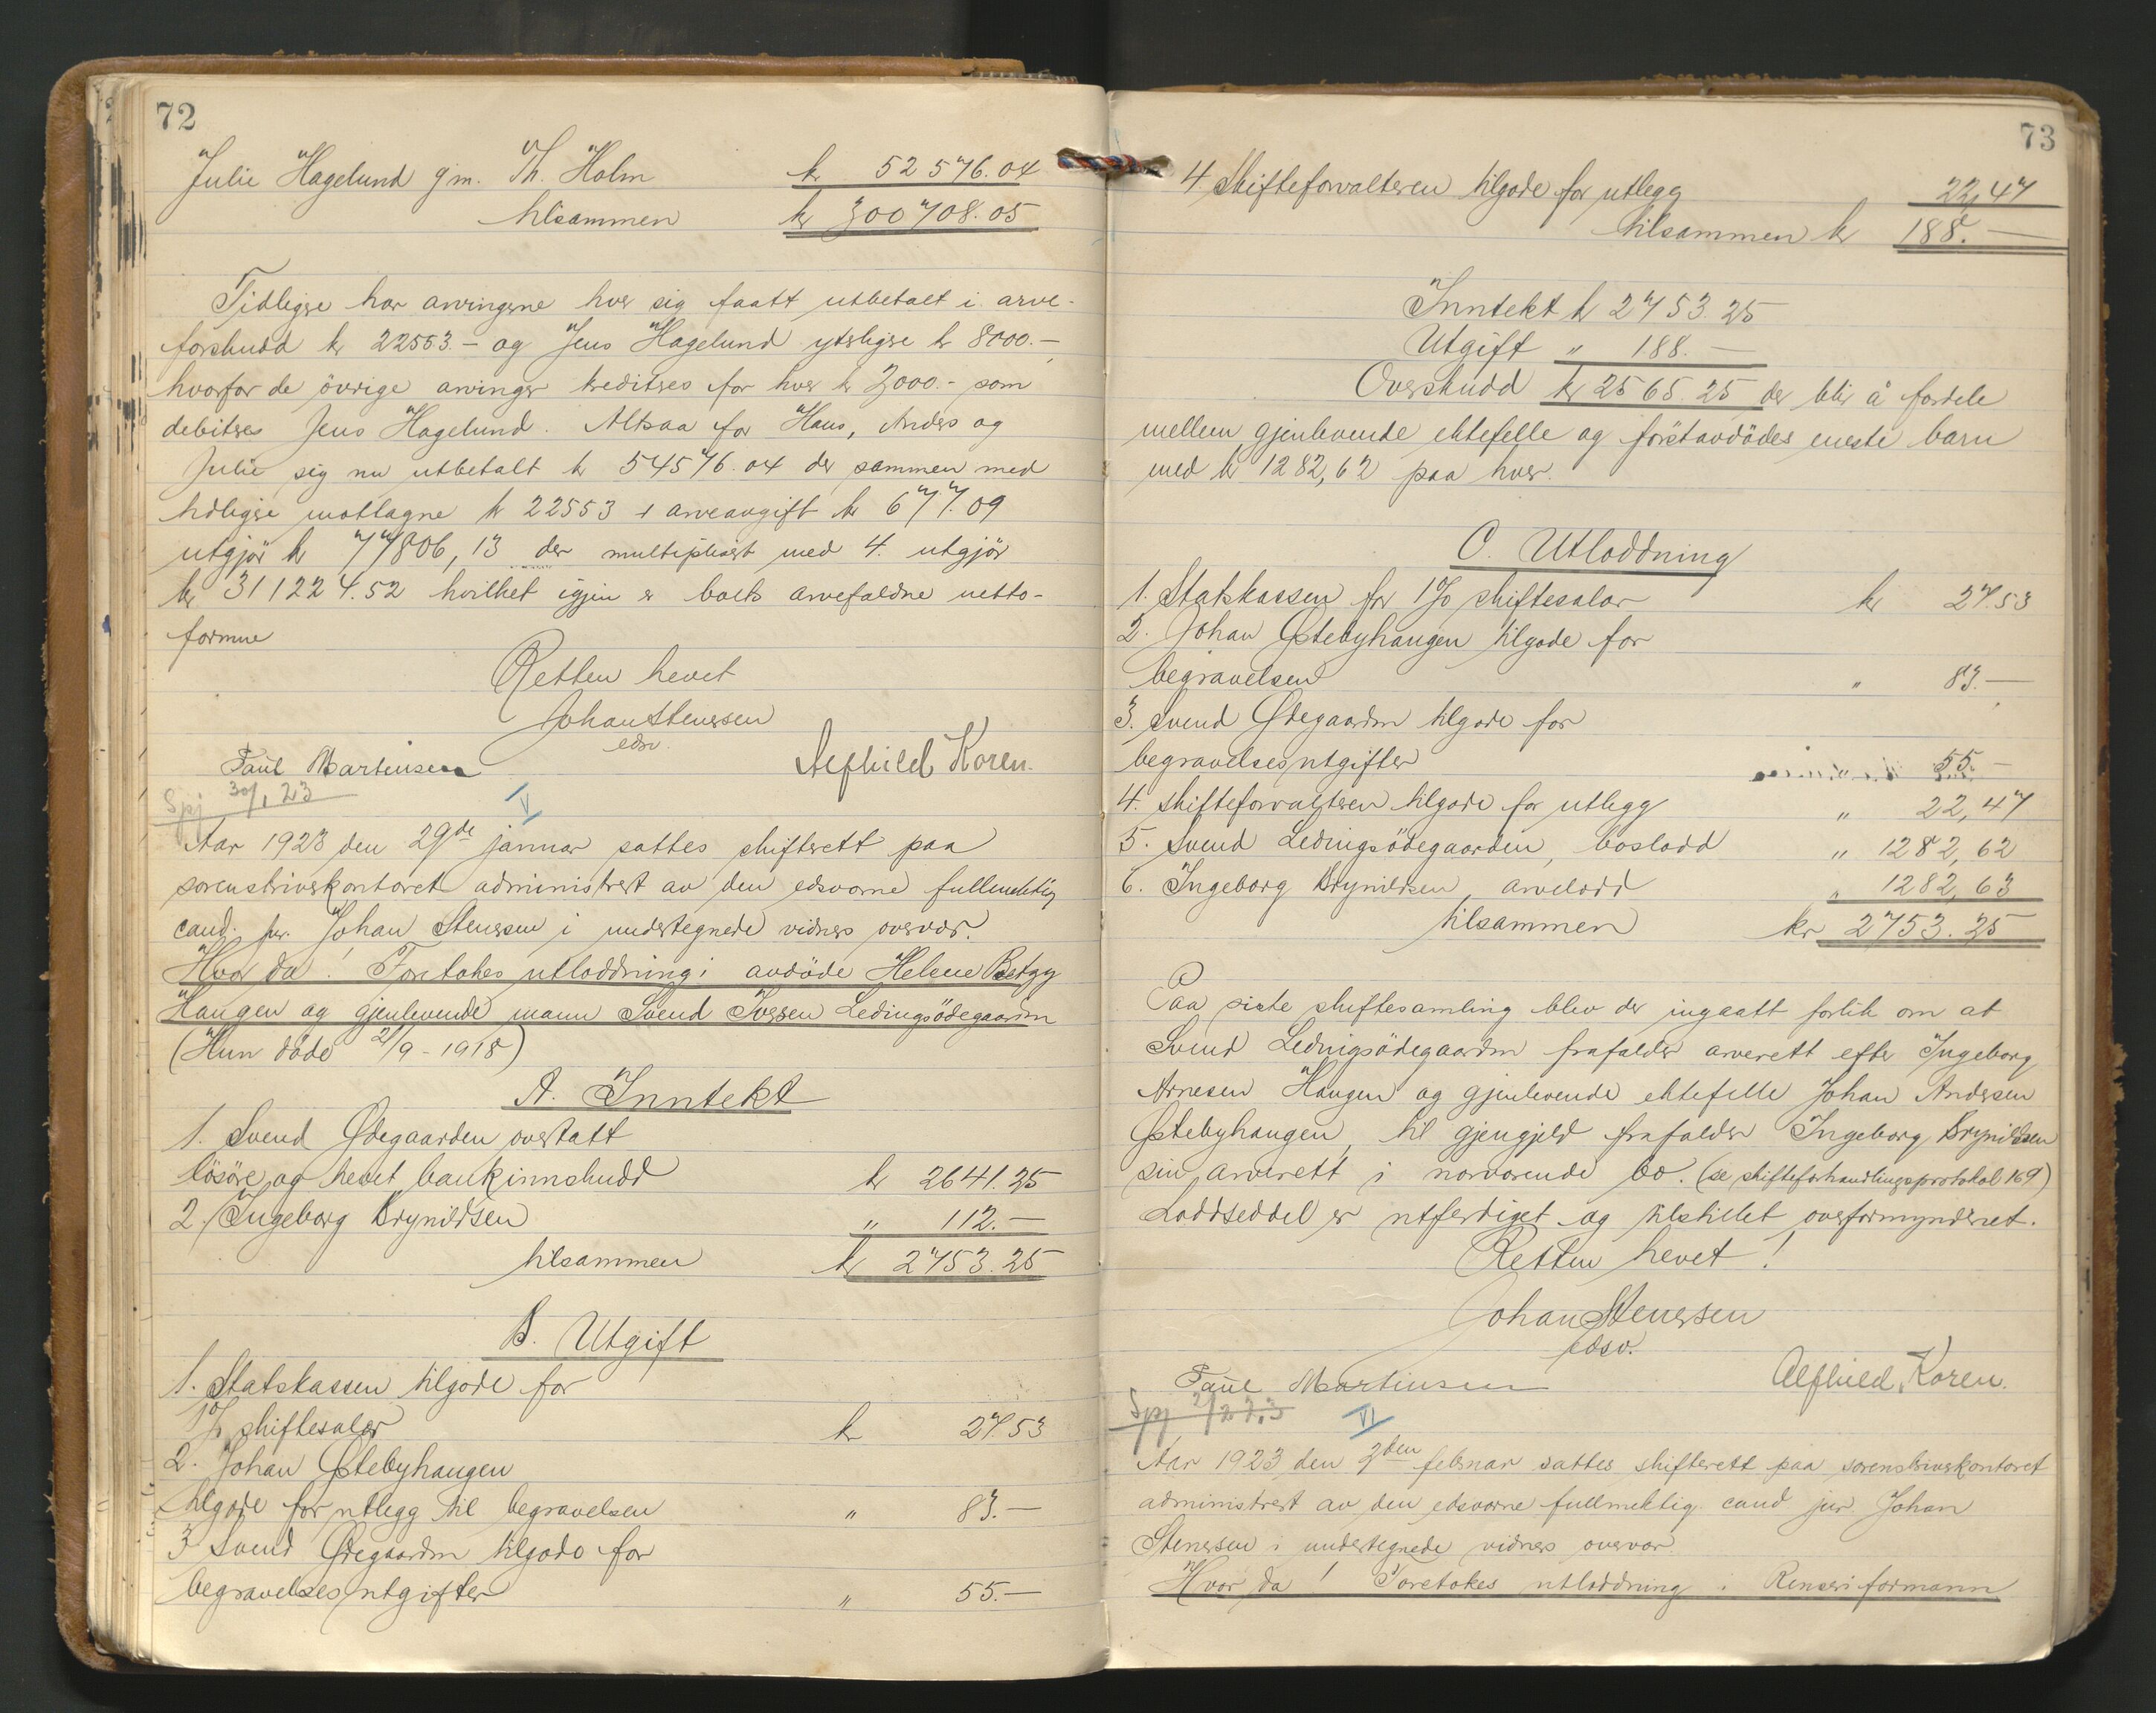 72
Julie Hagelund gm. Th. Holm kr 52576.04
tilsammen kr 300708.05
Tidligere har arvingerne hver sig faatt utbetalt i arve-
forskudd kr 22553.- og Jens Hagelund yterligere kr 8000.-,
hvorfor de övrige arvinger krediteres for hver kr 2000.- som
debiteres Jens Hagelund. Altsaa for Hans, Anders og
Julie sig nu utbetalt kr 54576.04 der sammen med
tidligere mottagne kr 22553 + arveavgift kr 677.09
utgjör kr 77806,13 der multiplisert med 4. utgjör
kr 311224.52 hvilket igjen er boets arvefaldne netto-
formue
Retten hevet
Johan Stenersen
edsv.
Paul Martinsen Alfhild Koren.
Spj 30/1 23
V
Aar 1923 den 29de januar sattes skifterett paa
sorenskriverkontoret administrert av den edsvorne fullmektig
cand. jur. Johan Stenersen i undertegnede vidners overvær.
Hvor da! Foretokes utloddning i avdöde Helene
Haugen og gjenlevende mann Svend Iversen Ledingsödegaarden
(Hun döde 21/9-1918)
A. Inntekt
1. Svend Ødegaarden overtatt
lösöre og hevet bankinnskudd kr 2641.25
2. Ingeborg Brynildsen " 112.-
tilsammen kr 2753.25
B. Utgift
1. Statskassen tilgode for
1% skiftesalær kr 27.53
2. Johan Østebyhaugen
tilgode for utlegg til begravelsen " 83.-
3 Svend Ødegaarden tilgode for
begravelsesutgifter " 55.-
73
4 Skifteforvalteren tilgode for utlegg 22,47
tilsammen kr 188.-
Inntekt kr 2753.25
Utgift " 188.-
Overskudd kr 2565.25 der blir å fordele
mellem gjenlevende ektefelle og förstavdödes eneste barn
med kr 1282,62 paa hver.
C. Utloddning
1. Statskassen for 1% skiftesalær kr 27.53
2. Johan Østebyhaugen tilgode for
begravelsen " 83.-
3. Svend Ødegaarden tilgode for
begravelsesutgifter 55.-
4. Skifteforvalteren tilgode for utlegg " 22,47
5. Svend Ledingsödegaarden, boslodd " 1282,62
6. Ingeborg Brynildsen, arvelodd " 1282,63
tilsammen kr 2753.25
Paa siste skiftesamling blev der ingaatt forlik om at
Svend Ledingsödegaarden frafalder arverett efter Ingeborg
Arnesen Haugen og gjenlevende ektefelle Johan Andersen
Østebyhaugen, til gjengjeld frafalder Ingeborg Brynildsen
sin arverett i nærværende bo. (se skifteforhandlingsprotokol 169)
Loddseddel er utferdiget og tilstillet overformynderiet.
Retten hevet!
Johan Stenersen
edsv.
Paul Martinsen Alfhild Koren.
Spj 2/2 23
VI
Aar 1923 den 2den februar sattes skifterett paa sorenskriverkontoret
administrert av den edsvorne fullmektig cand jur Johan
Stenersen i undertegnede vidners overvær.
Hvor da! Foretokes utloddning i Renseriformann